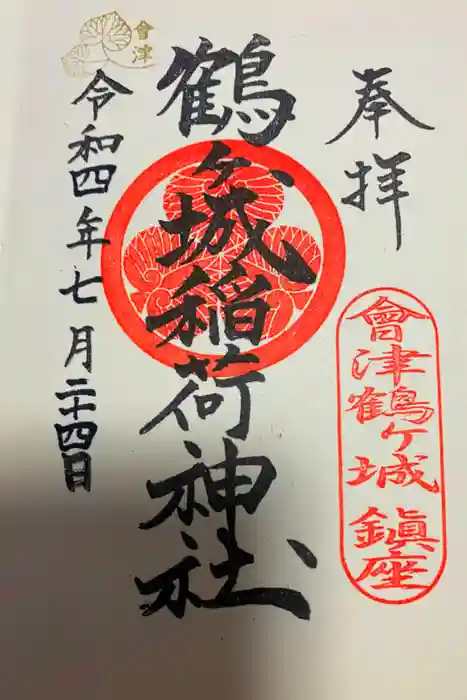 奉拝
會津鶴ヶ城鎮座
鶴ヶ城稲荷神社
會津
令和四年七月二十四日